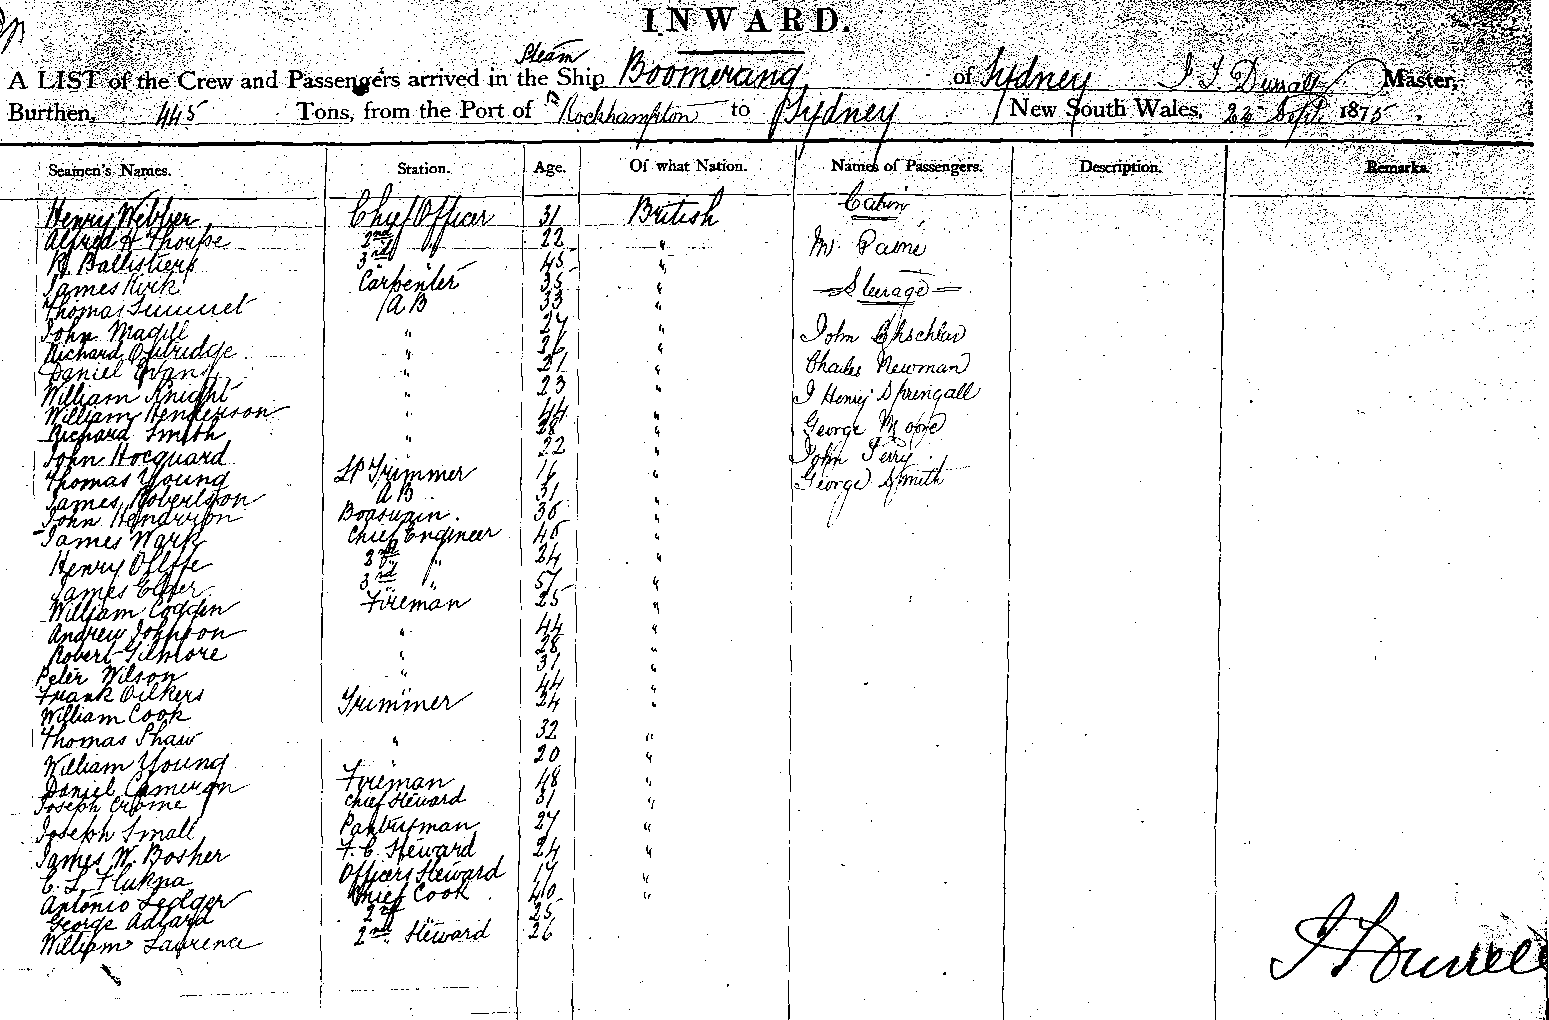 INWARD.
Steam
A LIST of the Crew and Passengers arrived in the Ship Boomerang of Sydney Master,
Burthen, 445 Tons, from the Port of Rockhampton to Sydney New South Wales, 22nd Sept 1875.
Seamen's Names. Station. Age. Of what Nation. Names of Passengers. Description. Remarks.
Henry Webber Chief Officer 31 British Cabin
Alfred H Thorpe 2nd " 22 "
Mr Paine
3rd " 45 "
James Kirk Carpenter 35 " Steerage
Thomas A B 33 "
John Magill " 27 " John
Richard " 26 "
Daniel Evans " 21 " Charles Newman
William Knight " 23 " J Henry Springall
William Henderson " 44 "
Richard Smith " 28 " George Moore
John Hocquard 22 " John Perry
Thomas Young Trimmer 16 " George Smith
James Robertson A B 31 "
John Hendrion Boaswain. 36 "
James Wark Chief Engineer 46 "
Henry Oliffe 2nd " 24 "
James 3rd " 57 "
William Cogden Fireman 25 "
Andrew Johnson " 44 "
Robert Gilmore " 28 "
Peter Wilson " 31 "
Frank Oilkers " 44 "
William Cook Trimmer 24 "
Thomas Shaw " 32 "
William Young 20 "
Daniel Cameron Fireman 48 "
Joseph Crome Chief Steward 31 "
Joseph Small Pantryman 27 "
James W. Bosher F. C. Steward 24 "
Officers Steward 17 "
Antonio Ledger Chief Cook 40 "
George Adlard 2nd " 25
William Laurence 2nd Steward 26